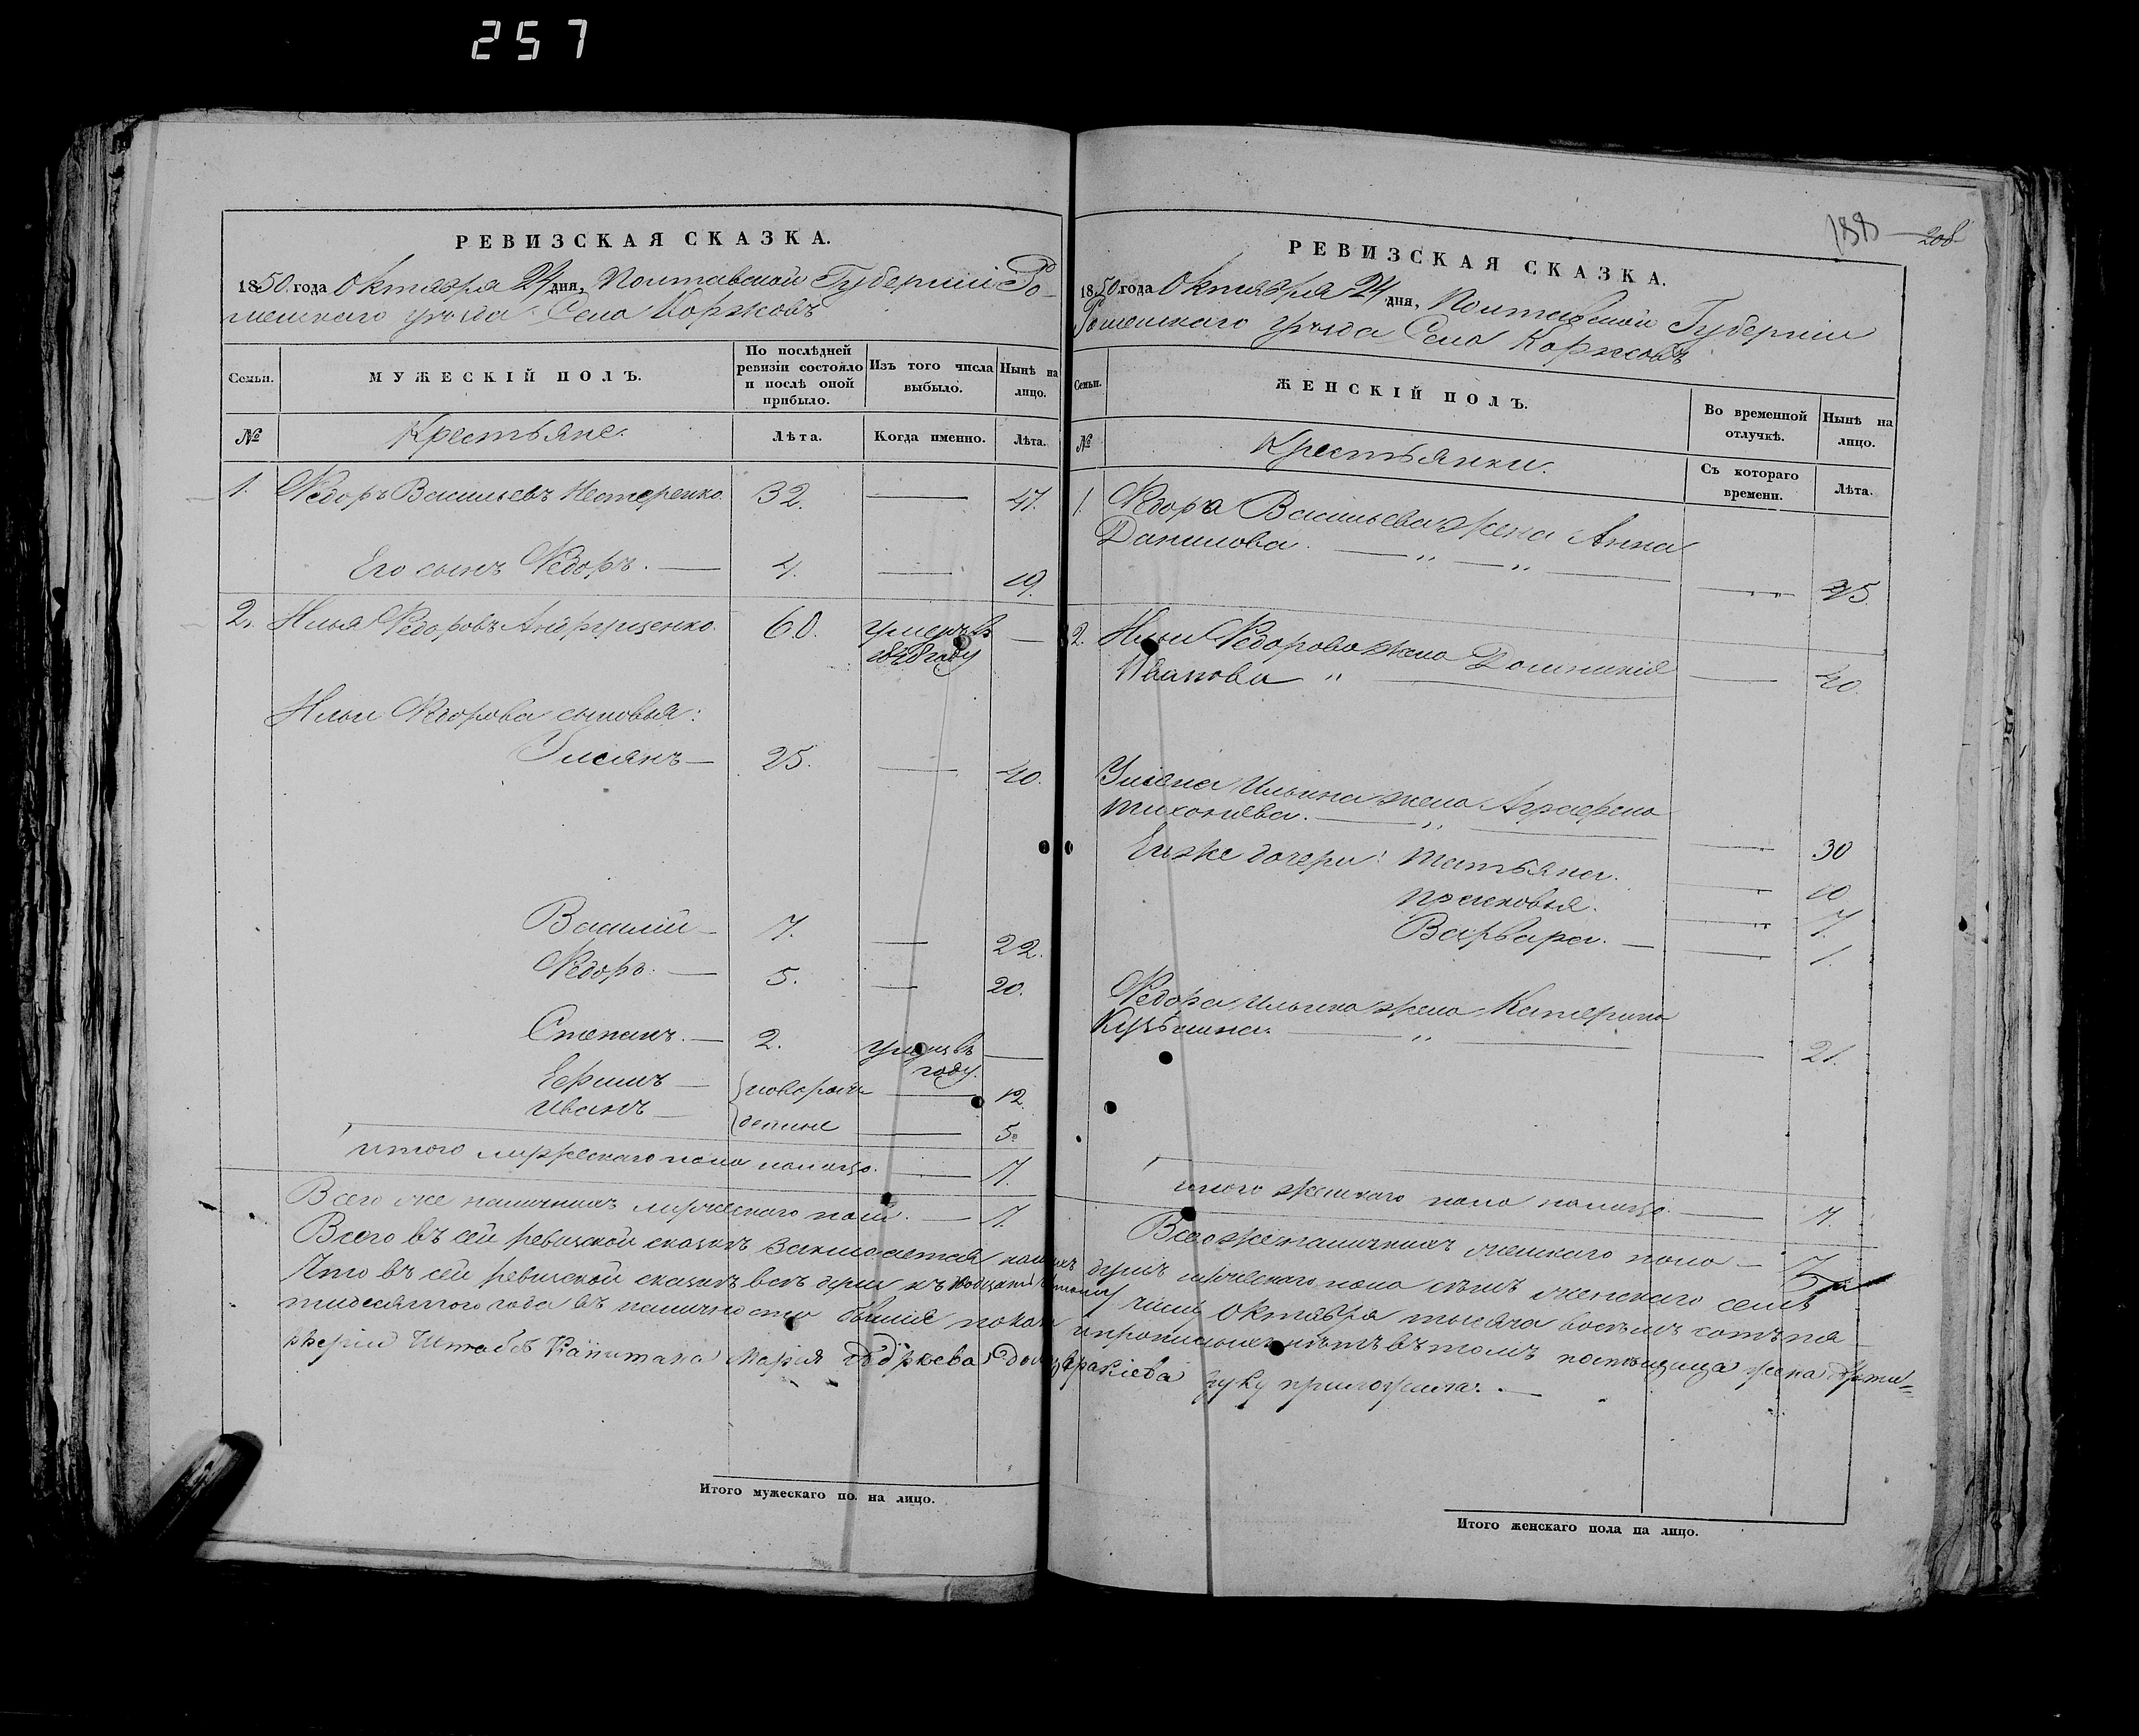 257
РЕВИЗСКАЯ СКАЗКА.
1850 года Октября 24 дня, Полтавской Губерніи Ро-
менскаго уѣзда Села Коржовъ
Семьи.
МУЖЕСКІЙ ПОЛЪ.
По послѣдней ревизіи состояло и послѣ оной прибыло.
Изъ того числа выбыло.
Нынѣ на лицо.
№
Крестьяне.
Лѣта.
Когда именно.
Лѣта.
1. Ѳедоръ Васильевъ Нестеренко. 32. — 47.
Его сынъ Ѳедоръ. — 4. — 19.
2. Илья Ѳедоровъ 60. умеръ въ —
году
Ильи Ѳедорова сыновья:
Улиянъ — 25. — 40.
Василій — 7. — 22.
Ѳедоръ. — 5. — 20.
Степанъ. — 2. —
году.
Ефимъ — новорож — 12
Иванъ — денные — 5.
Итого мужескаго пола налицо. — 7.
Всего же наличныхъ мужескаго пола. — 7.
188 208
РЕВИЗСКАЯ СКАЗКА.
1850 года Октября 24 дня, Полтавской Губерніи
Роменскаго уѣзда Села Коржовъ
Семьи.
ЖЕНСКІЙ ПОЛЪ.
Во временной отлучкѣ.
Нынѣ на лицо.
№
Крестьянки.
Съ котораго времени.
Лѣта.
1. Ѳедора Васильева жена Анна
Данилова. — „ — „ — 45.
2. Ильи Ѳедорова жена Домникія
Иванова „ — 40.
Улияна Ильина жена Аграфена
Тихоніева. — „ — 30
Ея же дочери: Татьяна. — 10
Прасковья. — 7.
Варвара. — 1.
Ѳедора Ильина жена Катерина
Кузьмина. — „ — 21.
Итого женскаго пола налицо. — 7.
Всего же наличныхъ женскаго пола — 7
Всего въ сей ревизской сказкѣ заключается душъ мужескаго пола семь женскаго семь
Что въ сей ревизской сказкѣ всѣ души къ числу Октября тысяча восемь сотъ пя
тидесятого года въ наличности бывшіе показаны и прописныхъ нѣтъ въ томъ помѣщица жена Арти=
Штабсъ Капитана Марія руку приложила. —
Итого мужескаго по. на лицо.
Итого женскаго пола на лицо.